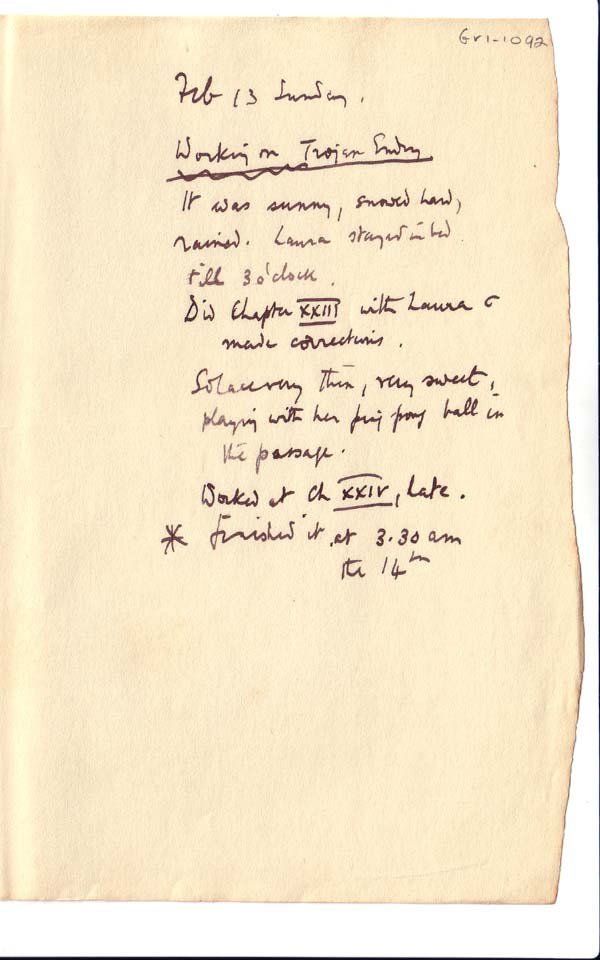 Gr1-1092
Feb 13 Sunday.
Working on Trojan Ending
It was sunny, snowed hard,
rained. Laura stayed in bed
till 3 o'clock.
Did Chapter XXIII with Laura &
made corrections.
Solace very thin, very sweet,
playing with her ping pong ball in
the passage.
Worked at Ch XXIV, late.
* finished it, at 3.30 am
the 14th